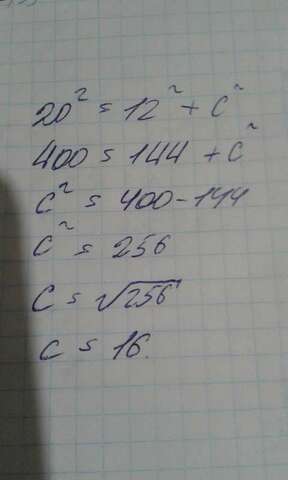 20² = 12² + c²
400 = 144 + c²
c² = 400 - 144
c² = 256
c = √256
c = 16.